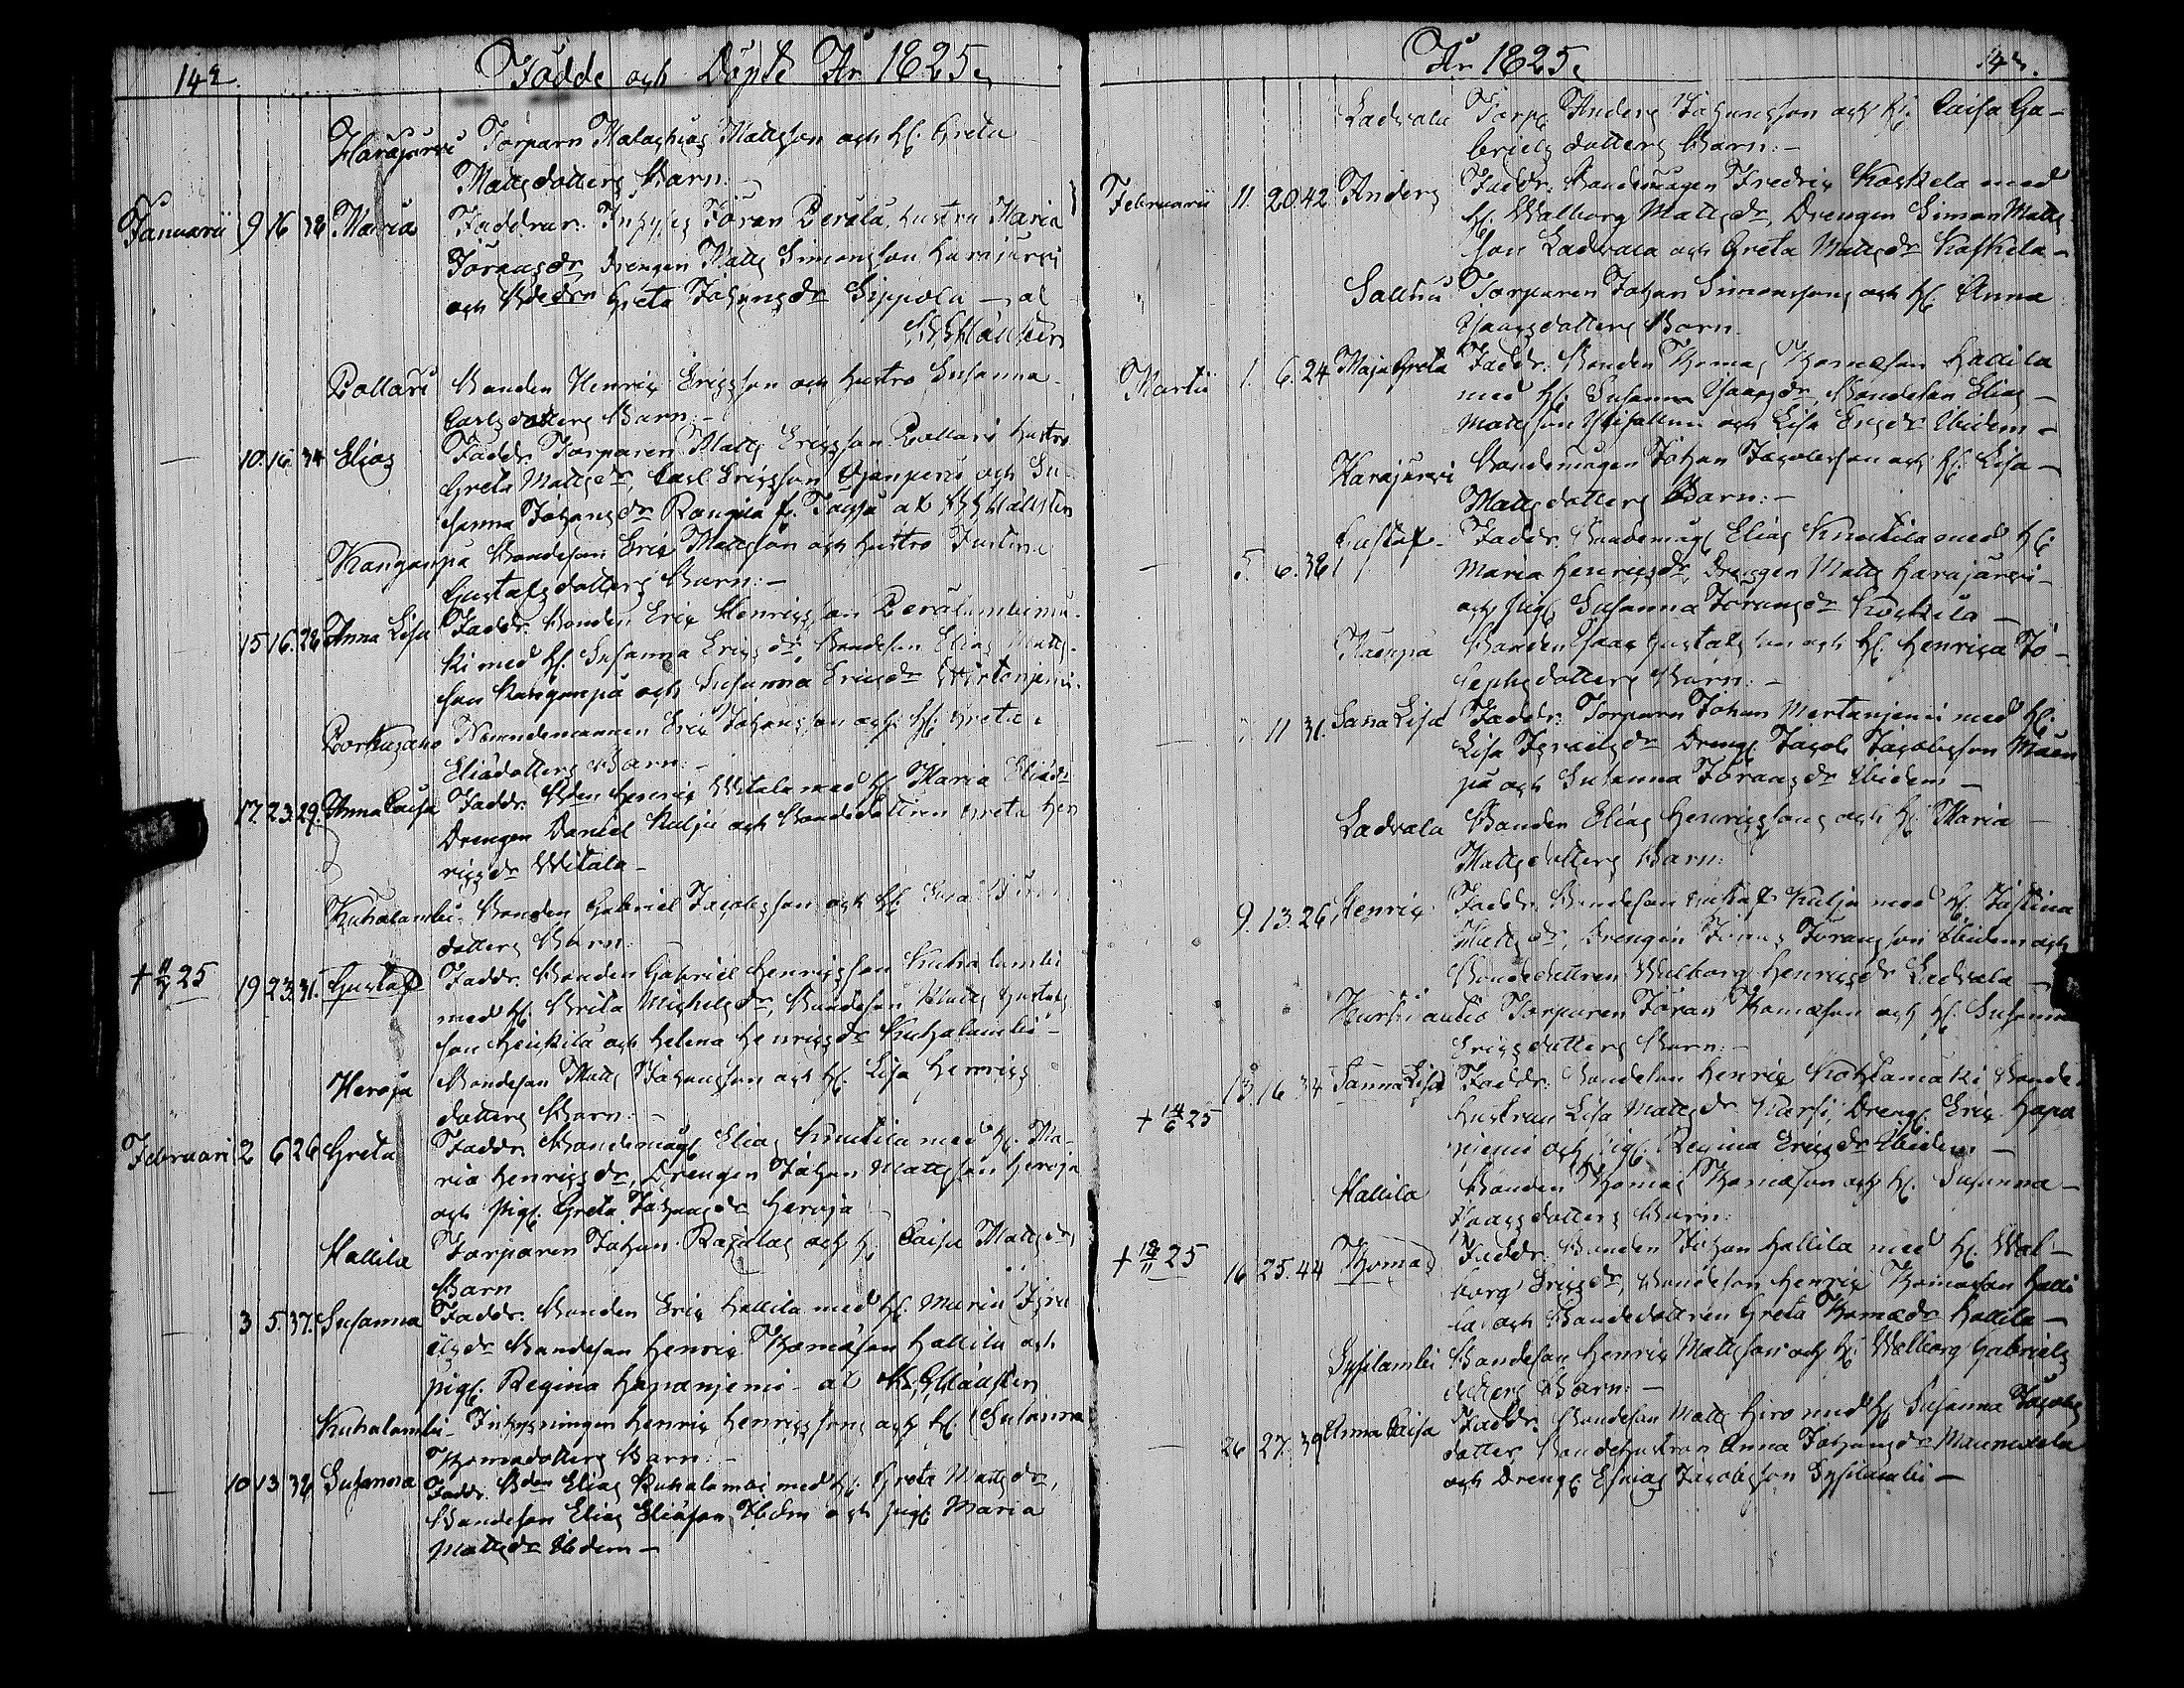 142.
Födde och Döpte År 1825.
Harajärvi Torparn Malachias Mattsson och H. Greta
Mattsdotters Barn:
Januarii 9 16 38 Maria Faddrar: Inhyses Jöran Perälä, hustru Maria
Joransdr, Drengen Matts Simonsson Harajärvi
och Greta Johansdr Sippola - al
Pollari Bonden Henric Ericsson och hustro Susanna
Carlsdotters Barn:-
10. 16 34 Elias Faddr. Torparen Matts Ericsson Pollari hustro
Greta Mattsdr, Carl Ericsson och Su-
sanna Johansdr
Kanganpä Bondeson Eric Mattsson och hustro Justina
Gustafsdotters Barn:-
15 16. 28 Anna Lisa Faddr. Bonden Eric Henricsson
ki med H. Susanna Ericsdr, Bondeson Elias Matts-
son Kanganpä och Susanna Ericsdr
Porkusaho Nämndemannen Eric Johansson och H. Greta
Eliædotters Barn:-
17. 23. 29. Anna Caisa Faddr. Henric Witala med H. Maria Eliædr
Drengen Daniel Kulju och Bondedottren Greta Hen
ricsdr Witala-
Kuhalambi Bonden Gabriel Jacobsson och H.
dotters Barn:
+ 25 19 23. 31. Gustaf Faddr. Bonden Gabriel Henricsson Kuhalambi
med H. Brita Michelsdr, Bondeson Matts Gustafs
son Heickilä och Helena Henricsdr Kuhalambi-
Heroja Bondeson Matts Johansson och H. Lisa Henrics
dotters Barn:-
Februari 2 6 26 Greta Faddr. Bondemåg Elias Knuutila med H. Ma-
ria Henricsdr, Drengen Johan Mattsson Heroja
och Pig. Greta Johansdr Heroja
Hallila Torparen Johan och H. Caisa Mattsdrs
Barn
3 5. 37. Susanna Faddr. Bonden Eric Hallila med H. Maria Isra
elsdr Bondeson Henric Thomæson Hallila och
pig. Regina Hapanjemi - al
Kuhalambi Inhysningen Henric Henricssons och H. Susanna
Thomædotters Barn:-
10 13 38 Susanna Faddr. Elias Kuhalambi med H. Greta Mattsdr,
Bondeson Elias Eliæson Ibdm och pig. Maria
Mattsdr Ibdem-
År 1825.
143.
Ladvala Torp. Anders Johansson och H. Caisa Ga-
brielsdotters Barn:-
Februarii 11. 20. 42 Anders Faddr. Bondemågen Fredric Koskela med
H. Walborg Mattsdr, Drengen Simon Matts
son Ladvala och Greta Mattsdr Koskela-
Torparen Johan Simonssons och H. Anna
Isaacsdotters Barn.
Martii 1. 6. 24 Maja Greta Faddr. Bonden Thomas Thomæson Hallila
med H. Susanna Isaacsdr, Bondeson Elias
Mattsson och Lisa Ersdr Ibidem-
Harajärvi Bondemågen Johan Jacobsson och H. Lisa
Mattsdotters Barn:-
5. 6. 38 Gustaf Faddr. Bondemåg Elias Knuutila med H.
Maria Henricsdr, Drengen Matts Harajärvi-
och pig. Susanna Joransdr
Maunpä Bonden Isaac Gustafsson och H. Henrica Jo-
sephsdotters Barn:-
7 11 31. Sanna Lisa Faddr. Torparn Johan med H.
Lisa Israelsdr Dreng. Jacob Jacobsson Maun
pä och Susanna Joransdr Ibidem-
Ladvala Bonden Elias Henricssons och H. Maria
Mattsdotters Barn:
9. 13. 26 Henric Faddr. Bondeson Gustaf Kulju med H. Justina
Mattsdr, Drengen Joransson Ibidem och
Bondedottren Walborg Henricsdr Ladvala
Torparen Jöran Thomæson och H. Susanna
Ericsdotters Barn:-
+ 14/6 25 13 16 34 Sanna Lisa Faddr. Bondeson Henric Kohtamäki, Bonde
hustrun Lisa Mattsdr Dreng. Eric Hapa
njemi och pig. Regina Ericsdr Ibidem-
Hallila Bonden Thomas Thomæson och H. Susanna
Isaacsdotters Barn:
+ 12/11 25 16 25. 44 Thomas Faddr. Bonden Johan Hallila med H. Wal-
borg Ericsdr, Bondeson Henric Thomæson Halli
la och Bondedottren Greta Thomædr Hallila-
Sysilambi Bondeson Henric Mattsson och H. Walborg Gabriels
dotters Barn:-
26 27. 39 Anna Caisa Faddr. Bondeson Matts Hiro med H. Susanna Jacobs
dotter, Bondehustrun Anna Johansdr
och Dreng. Esaias Jacobsson Sysilambi-